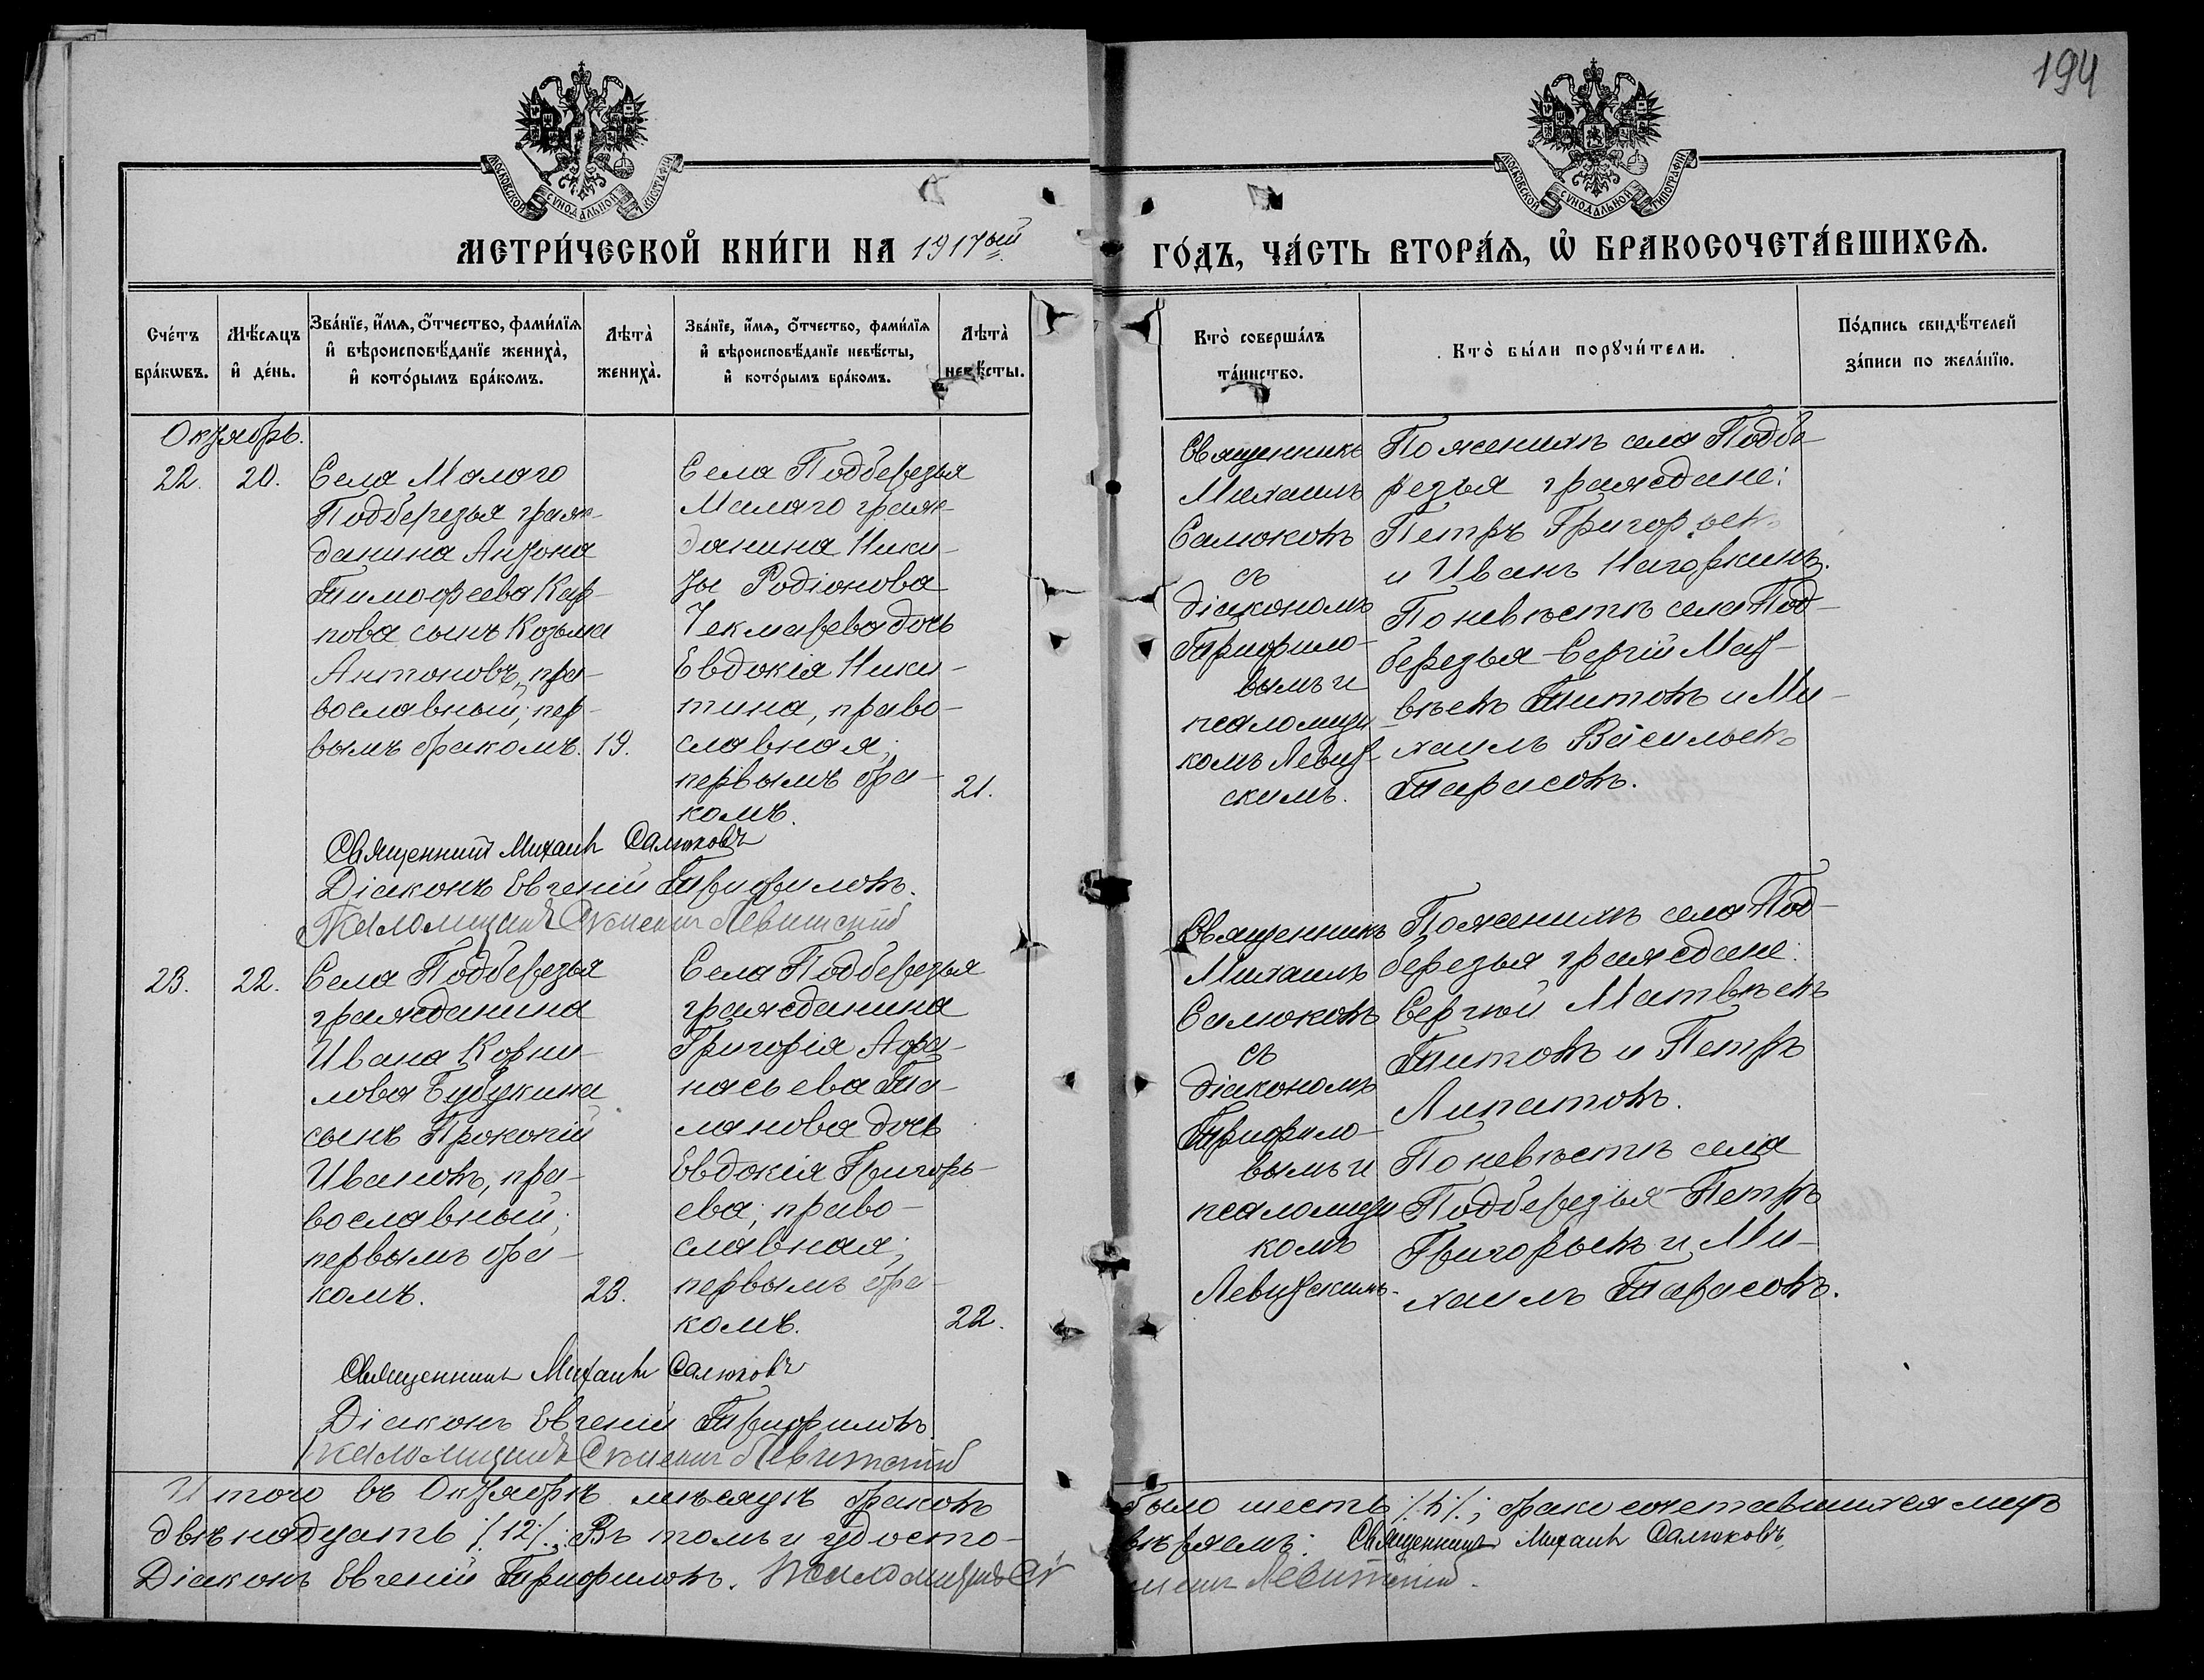 194
МОСКОВСКОЙ СѴНОДАЛЬНОЙ ТИПОГРАФІИ
МОСКОВСКОЙ СѴНОДАЛЬНОЙ ТИПОГРАФІИ
МЕТРИ́ЧЕСКОЙ КНИ́ГИ НА 1917ый
ГО́ДЪ, ЧА́СТЬ ВТОРА́Ѧ, Ѡ҆ БРАКОСОЧЕТА́ВШИХСѦ.
Сче́тъ
бра́кѡвъ.
Мѣ́сѧцъ
и҆ де́нь.
Зва́нїе, и҆́мѧ, ѻ҆́тчество, фами́лїѧ
и҆ вѣроисповѣ́данїе жениха̀,
и҆ кото́рымъ бра́комъ.
Лѣта̀
жениха̀.
Зва́нїе, и҆́мѧ, ѻ҆́тчество, фами́лїѧ
и҆ вѣроисповѣ́данїе невѣ́сты,
и҆ кото́рымъ бра́комъ.
Лѣта̀
невѣ́сты.
Кто̀ соверша́лъ
та́инство.
Кто̀ бы́ли порꙋчи́тели.
По́дпись свидѣ́телей
за́писи по жела́нїю.
Октябрь.
22.
20.
Села Малаго
Подберезья граж-
данина Антона
Тимофеева Кар-
пова сынъ Козьма
Антоновъ, пра-
вославный; пер-
вымъ бракомъ.
19.
Села Подберезья
Малаго граж-
данина Ники-
ты Родіонова
Чекмарева дочь
Евдокія Ники-
тина, право-
славная;
первымъ бра-
комъ.
21.
Священникъ
Михаилъ
Салюковъ
съ
діакономъ
Трифило-
вымъ и
псаломщи-
комъ Левит-
скимъ.
По женихѣ села Подбе-
резья граждане:
Петръ Григорьевъ
и Иванъ Нагоркинъ.
По невѣстѣ села Под-
березья Сергій Мат-
вѣевъ Титовъ и Ми-
хаилъ Васильевъ
Тарасовъ.
Священникъ Михаилъ Салюковъ
Діаконъ Евгеній Трифиловъ.
Псаломщикъ Левитскій
23.
22.
Села Подберезья
гражданина
Ивана Корни-
лова Бубукина
сынъ Прокопій
Ивановъ, пра-
вославный;
первымъ бра-
комъ.
23.
Села Подберезья
гражданина
Григорія Афа-
насьева Та-
ланова дочь
Евдокія Григорь-
ева; право-
славная;
первымъ бра-
комъ.
22.
Священникъ
Михаилъ
Салюковъ
съ
діакономъ
Трифило-
вымъ и
псаломщи-
комъ
Левитскимъ.
По женихѣ села Под-
березья граждане:
Сергѣй Матвѣевъ
Титовъ и Петръ
Липатовъ.
По невѣстѣ села
Подберезья Петръ
Григорьевъ и Ми-
хаилъ Тарасовъ.
Священникъ Михаилъ Салюковъ
Діаконъ Евгеній Трифиловъ
Псаломщикъ Левитскій
Итого въ Октябрѣ мѣсяцѣ браковъ было шесть /:6:/; бракосочетавшихся лицъ
двѣнадцать /:12:/; Въ томъ и удосто- вѣряемъ: Священникъ Михаилъ Салюковъ,
Діаконъ Евгеній Трифиловъ. Псаломщикъ Левитскій.